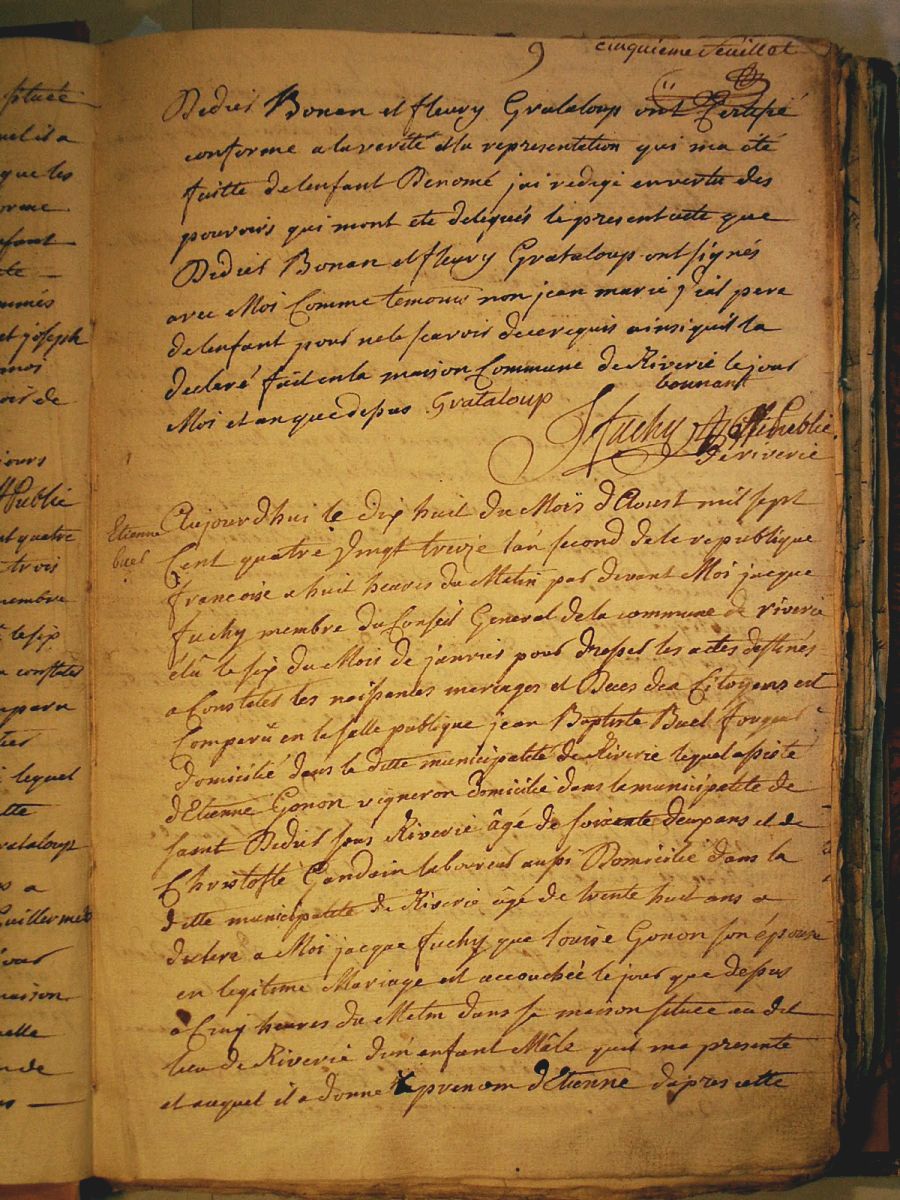 9 cinquieme feuillet
Dediet Bonan et fleury Grataloup ont Certifié
conforme a la verité et la representation qui ma été
faitte de lenfant Denomé jai redigé en vertu des
pouvoirs qui mont eté delegués le present acte que
Dediet Bonan et fleury Grataloup ont signés
avec Moi Comme temoins non jean marie pere
de lenfant pour ne le scavoir de ce requis ainsi quil la
declaré fait en la maison Commune de Riverie le jour
Moi et an que depus Grataloup bonnant
fuchy Off Publie
de riverie
Etienne
buel
Aujourdhui le dix huit du Mois d'Aouest mil sept
Cent quatre vingt treize lan second de la republique
francoise a huit heures du Metin par devant Moi jacque
fuchy membre du Conseil General de la commune de riverie
élû le six du Mois de janvier pour dresser les actes destinés
a Constater les naissances mariages et Deces des Citoyens est
Comparû en la salle publique jean Baptiste Buel
domicilié dans la ditte municipalité de Riverie lequel assisté
d'Etienne Gonon vigneron domicilié dans la municipalite de
saint Dediet sous Riverie âgé de soixante deux ans et de
Christofle Gandain laboureur aussi Domicilié dans la
ditte municipalité de Riverie âgé de trente huit ans a
declaré a Moi jacque fuchy que Louise Gonon son épouse
en legitime Mariage est accouchée le jour que depus
a Cinq heures du Metin dans sa maison situee au dit
lieu de Riverie d'un enfant Mâle quil ma presenté
et auquel il a donné le prenom d'Etienne dapres cette
situeé
que les
enfant
et joseph
jours
Publie
quatre
trois
membre
le six
constater
lequel
Grataloup
a
maison